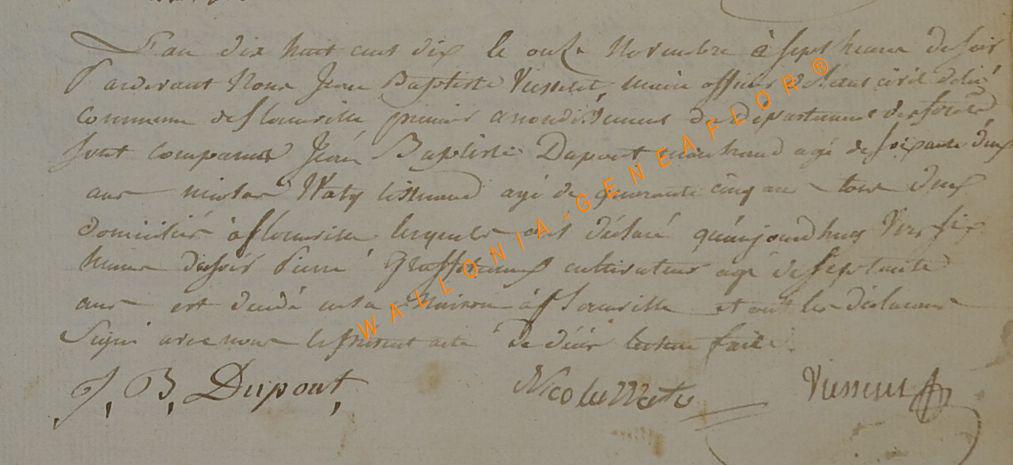 L'an dix huit cent dix le onze Novembre à sept heure du soir
Pardevant Nous Jean Baptiste maire officier de l'état civil de la
commune de premier arondissement du département des forêts
sont comparus Jean Baptiste Dupont marchand agé de soixante deux
ans Waty tisserand agé de quarante cinq ans tous deux
domiciliés à lesquels ont déclaré qu'aujourd'huy vers six
heure du soir Pierre cultivateur agé de septante
ans est décédé en sa Maison à et ont les déclarans
Signé avec nous le présent acte de décès lecture faite.
J. B. Dupont,
WALLONIA-GENEAFLOR®